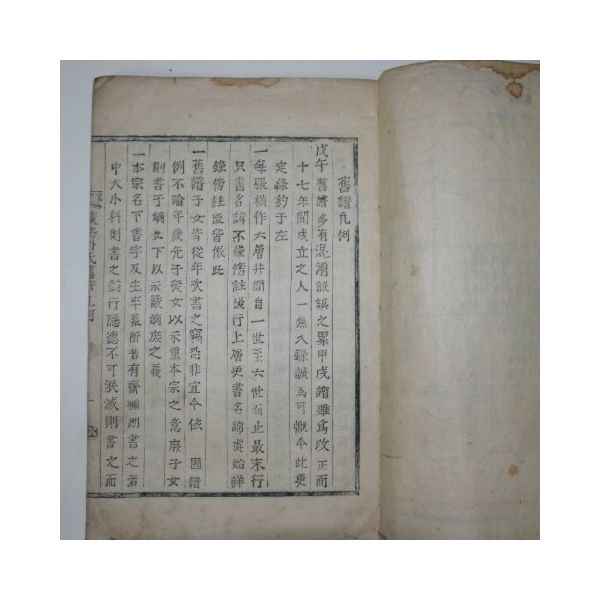 舊譜凡例
戊午舊譜多有混淆訛誤之累甲戌譜雖爲改正而
十七年間成立之人一無入錄誠爲可慨今此更
定條約于左
一每張橫作六層井間自一世至六世而止最末行
只書名諱不錄傍註後行上層更書名諱處始詳
錄傍註後皆倣此
一舊譜子女皆從年次書之竊恐非宜今依國譜
例不論年歲先子後女以示重本宗之意庶子女
則書于嫡女下以示嚴嫡庶之義
一本宗名下書字及生卒墓所若有齋號則書之若
中大小科則書之懿行隱德不可泯滅則書之而
氏舊譜凡例
一